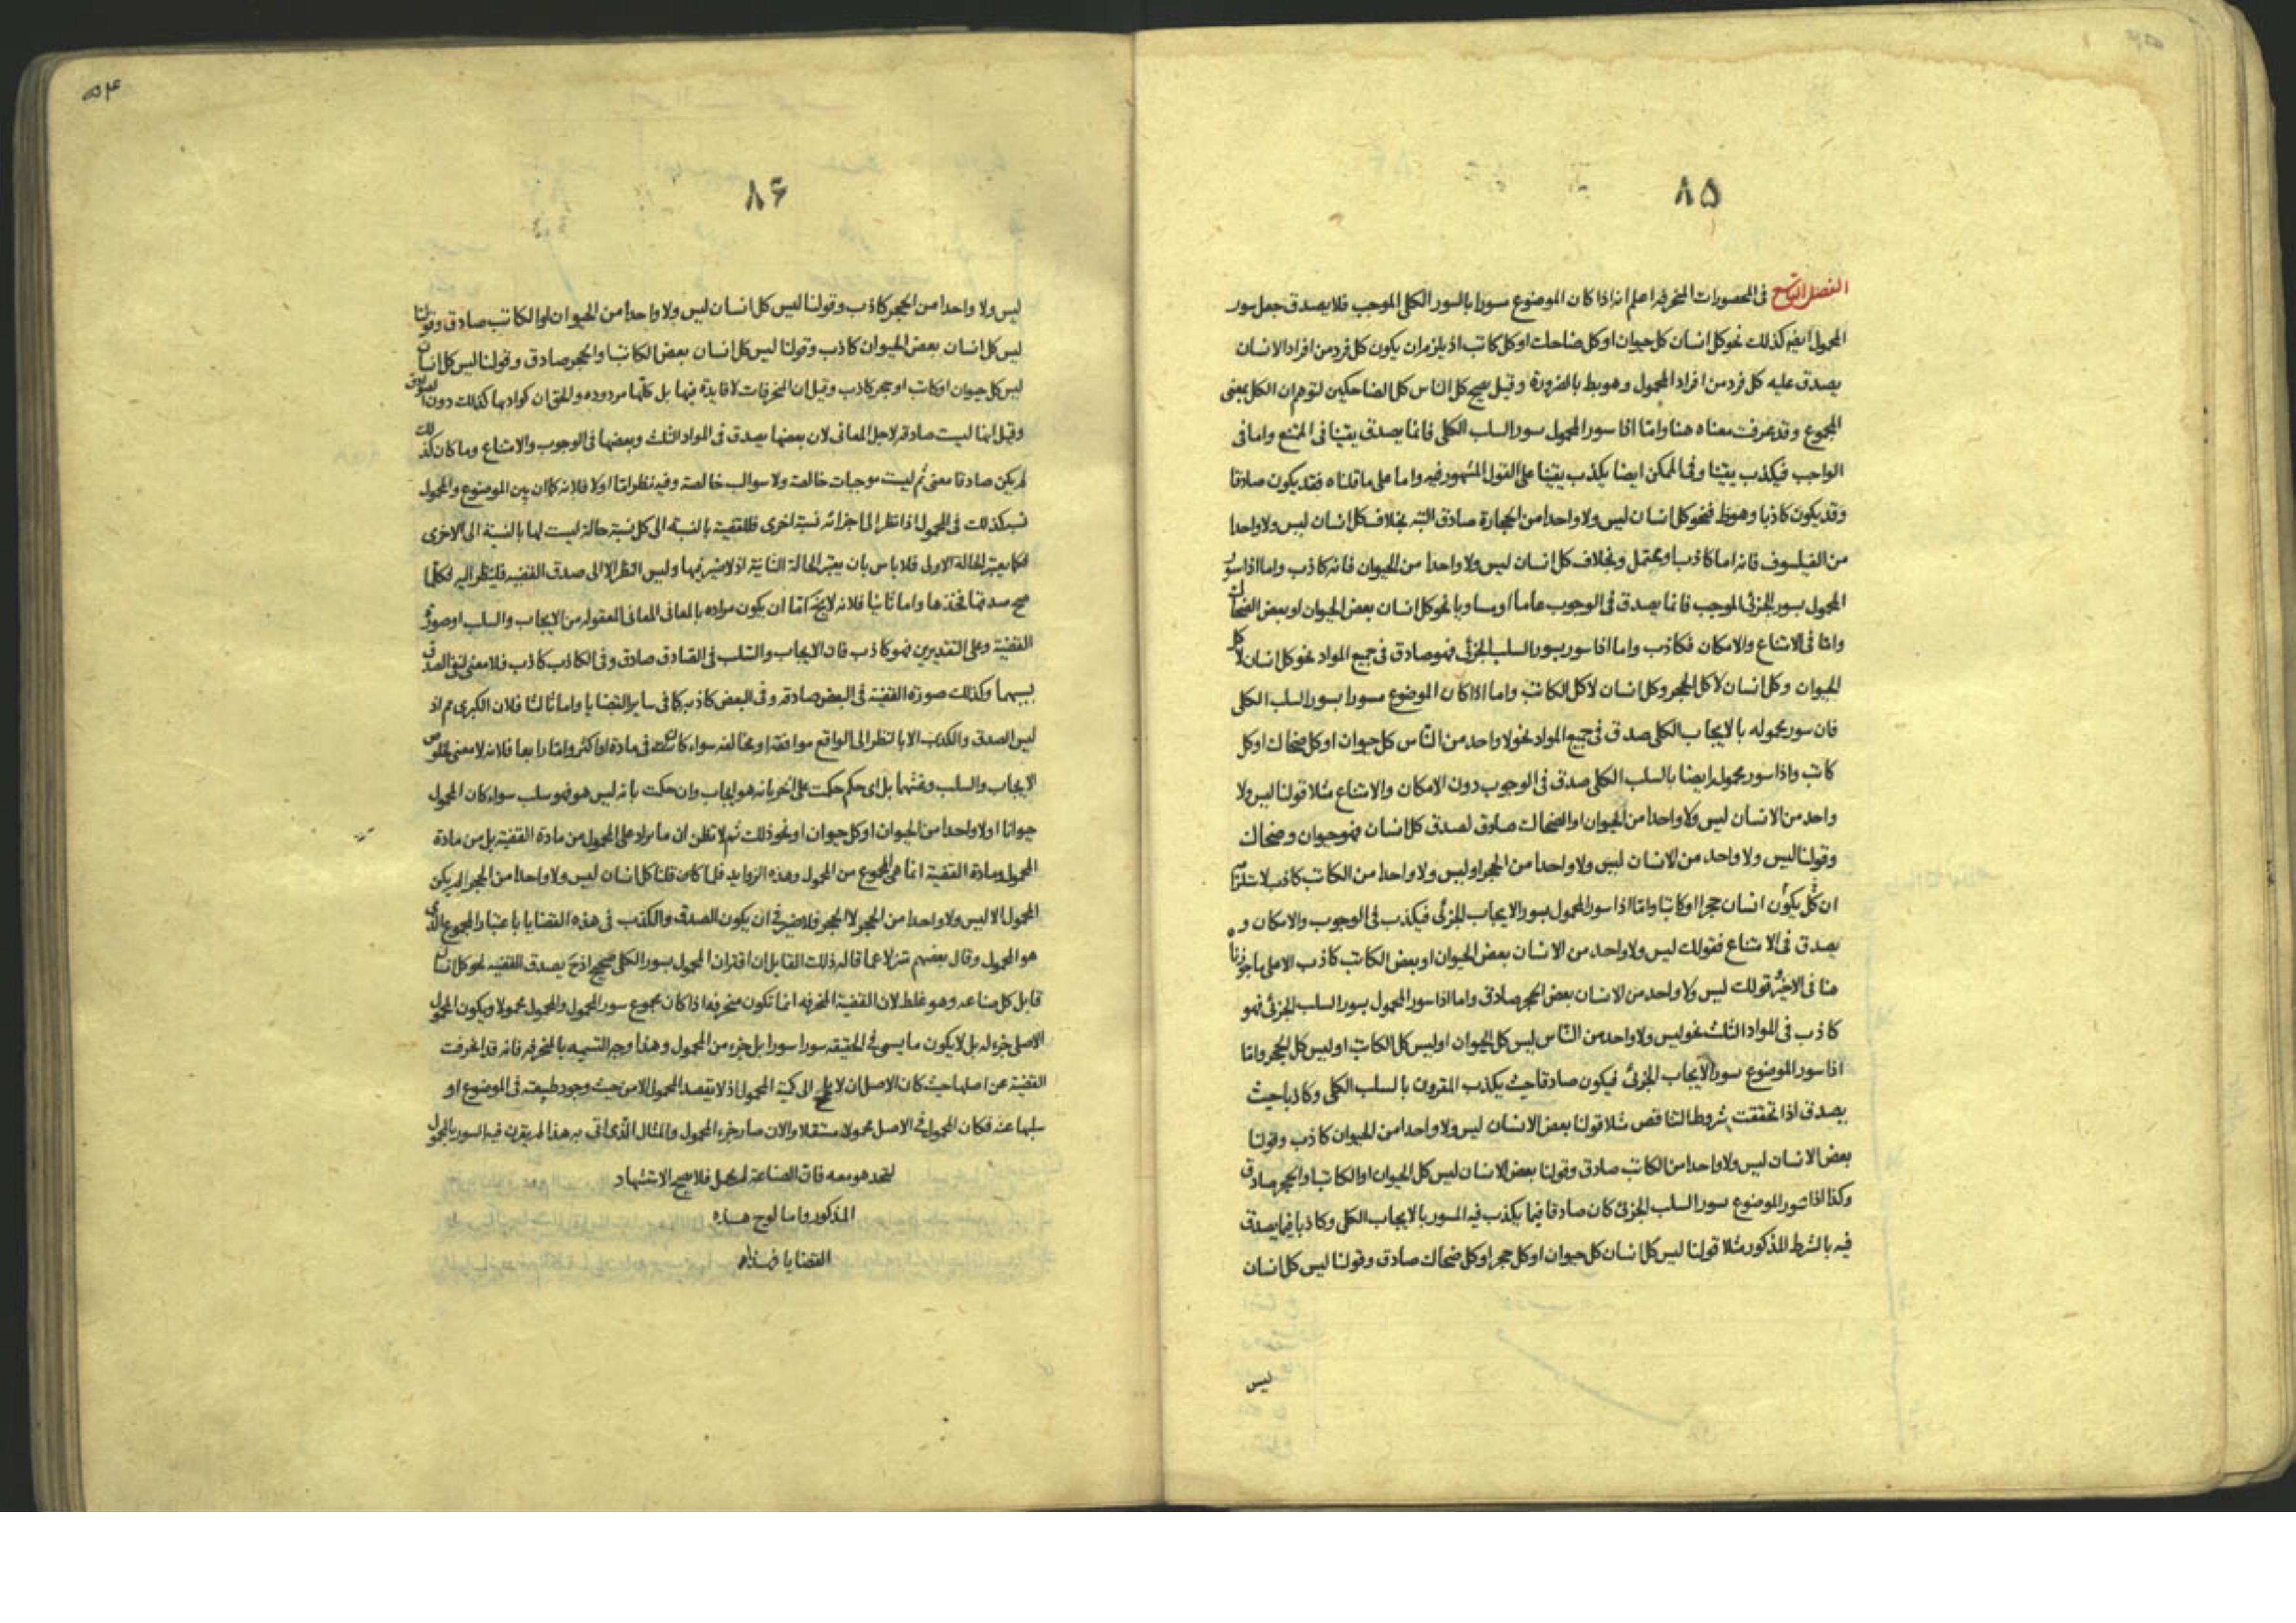 ٨٥
الفصل التاسع فی المحصورات المنحرفه اعلم انه اذا كان الموضوع مسورا بالسور الكلی الموجب فلا يصدق جعل سور
المحمول ايضا كذلك نحو كل انسان كل حيوان او كل ضاحك او كل كاتب اذ يلزم ان يكون كل فرد من افراد الانسان
يصدق عليه كل فرد من افراد المحمول وهو بط بالضرورة وقيل يصح كل الناس كل الضاحكين لتوهم ان الكل بمعنی
المجموع وقد عرفت معناه هنا واما اذا سور المحمول سور السلب الكلی فانما يصدق يقينا فی الممتنع واما فی
الواجب فيكذب يقينا وفی الممكن ايضا يكذب يقينا علی القول المشهور فيه واما علی ما قلناه فقد يكون صادقا
وقد يكون كاذبا وهو بط فنحو كل انسان ليس ولا واحدا من الحجارة صادق البته بخلاف كل انسان ليس ولا واحدا
من الفيلسوف فانه اما كاذب او محتمل وبخلاف كل انسان ليس ولا واحدا من الحيوان فانه كاذب واما اذا سور
المحمول بسور الجزئی الموجب فانما يصدق فی الوجوب عاما او مساويا نحو كل انسان بعض الحيوان او بعض الضحاك
واما فی الامتناع والامكان فكاذب واما اذا سور بسور السلب الجزئی فهو صادق فی جميع المواد نحو كل انسان لا كل
الحيوان وكل انسان لا كل الحجر وكل انسان لا كل الكاتب واما اذا كان الموضوع مسورا بسور السلب الكلی
فان سور محموله بالايجاب الكلی صدق فی جميع المواد نحو لا واحد من الناس كل حيوان او كل ضحاك او كل
كاتب واذا سور محموله ايضا بالسلب الكلی صدق فی الوجوب دون الامكان والامتناع مثلا قولنا ليس ولا
واحد من الانسان ليس ولا واحدا من الحيوان او الضحاك صادق لصدق كل انسان فهو حيوان وضحاك
وقولنا ليس ولا واحد من الانسان ليس ولا واحدا من الحجر او ليس ولا واحدا من الكاتب كاذب لاستلزامه
ان كل يكون انسان حجرا او كاتبا واما اذا سور المحمول بسور الايجاب الجزئی فيكذب فی الوجوب والامكان و
يصدق فی الامتناع فقولك ليس ولا واحد من الانسان بعض الحيوان او بعض الكاتب كاذب الا علی ما جوزنا
هنا فی الاخير وقولك ليس ولا واحد من الانسان بعض الحجر صادق واما اذا سور المحمول بسور السلب الجزئی فهو
كاذب فی المواد الثلث نحو ليس ولا واحد من الناس ليس كل الحيوان او ليس كل الكاتب او ليس كل الحجر واما
اذا سور الموضوع سور الايجاب الجزئی فيكون صادقا حيث يكذب المقرون بالسلب الكلی وكاذبا حيث
يصدق اذا تحققت شروط التناقض مثلا قولنا بعض الانسان ليس ولا واحدا من الحيوان كاذب وقولنا
بعض الانسان ليس ولا واحدا من الكاتب صادق وقولنا بعض الانسان ليس كل الحيوان او الكاتب او الحجر صادق
وكذا اذا سور الموضوع سور السلب الجزئی كان صادقا فيما يكذب فيه المسور بالايجاب الكلی وكاذبا فيما يصدق
فيه بالشرط المذكور مثلا قولنا ليس كل انسان كل حيوان او كل حجر او كل ضحاك صادق وقولنا ليس كل انسان
ليس
٥٤
٨۶
ليس ولا واحدا من الحجر كاذب وقولنا ليس كل انسان ليس ولا واحدا من الحيوان او الكاتب صادق وقولنا
ليس كل انسان بعض الحيوان كاذب وقولنا ليس كل انسان بعض الكاتب او الحجر صادق وقولنا ليس كل انسان
ليس كل حيوان او كاتب او حجر كاذب وقيل ان المنحرفات لا فايدة فيها بل كلها مردوده والحق ان كواذبها كذلك دون الصوادق
وقيل انها ليست صادقه لاجل المعانی لان بعضها يصدق فی المواد الثلث وبعضها فی الوجوب والامتناع وما كان كذلك
لم يكن صادقا معنی ثم ليست موجبات خالصة ولا سوالب خالصة وفيه نظر اما اولا فلانه كما ان بين الموضوع والمحمول
نسبه كذلك فی المحمول اذا نظر الی اجزائه نسبة اخری فللقضية بالنسبة الی كل نسبة حالة ليست لها بالنسبة الی الاخری
فكما يعتبر الحالة الاولی فلا باس بان يعتبر الحالة الثانية اذ لا ضير فيها وليس النظر الا الی صدق القضيه فلينظر اليه فكلما
صح صدقها فخذها واما ثانيا فلانه لا يخ اما ان يكون مراده بالمعانی المعانی المعقوله من الايجاب والسلب او صورة
القضية وعلی التقديرين فهو كاذب فان الايجاب والسلب فی الصادق صادق وفی الكاذب كاذب فلا معنی لنفی الصدق
بسببهما وكذلك صورة القضية فی البعض صادقه وفی البعض كاذبه كما فی ساير القضايا واما ثالثا فلان الكبری مم اذ
ليس الصدق والكذب الا بالنظر الی الواقع موافقة او مخالفه سواء كانت فی مادة او اكثر واما رابعا فلانه لا معنی لخلوص
الايجاب والسلب وغشهما بل ای حكم حكمت علی اخر بانه هو ايجاب وان حكمت بانه ليس هو فهو سلب سواء كان المحمول
حيوانا او لا واحدا من الحيوان او كل حيوان او نحو ذلك ثم لا تظن ان ما يزاد علی المحمول من مادة القضية بل من مادة
المحمول ومادة القضية انما هی المجموع من المحمول وهذه الزوايد فلما كان قلنا كل انسان ليس ولا واحدا من الحجر لم يكن
المحمول الا ليس ولا واحدا من الحجر لا الحجر فلا ضير فی ان يكون الصدق والكذب فی هذه القضايا باعتبار المجموع الذی
هو المحمول وقال بعضهم تنزلا عما قاله ذلك القايل ان اقتران المحمول بسور الكلی صحيح اذ ح يصدق القضيه نحو كل انسان
قابل كل صناعه وهو غلط لان القضية المنحرفه انما تكون منحرفه اذا كان مجموع سور المحمول والمحمول محمولا ويكون المحمول
الاصلی جزء له بل لا يكون ما يسمی فی الحقيقه سورا سورا بل جزء من المحمول وهذا وجه التسميه بالمنحرفه فانه قد انحرفت
القضية عن اصلها حيث كان الاصل ان لا الی كمية المحمول اذ لا يقصد المحمول الا من حيث وجود طبيعته فی الموضوع او
سلبها عنه فكان المحمول فی الاصل محمولا مستقلا والان صار جزء المحمول والمثال الذی اتی به هذا لم يقرن فيه السور بالمحمول
ليتحد هو معه فان الصناعة لم تحمل فلا يصح الاستشهاد
المذكور واما لوح هذه
القضايا فهذا